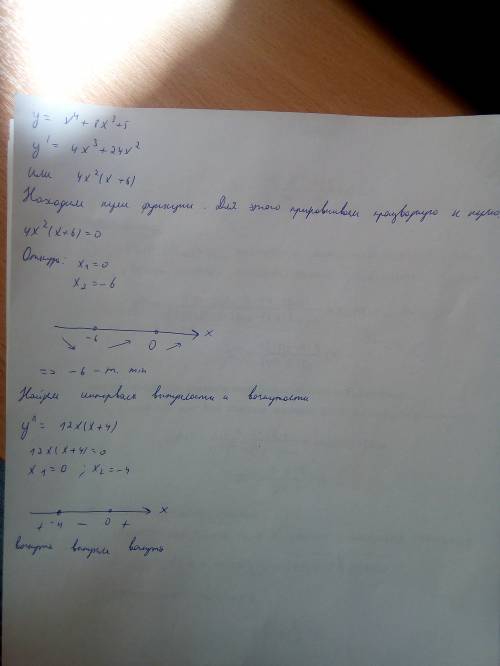 y = x⁴ + 8x³ + 5
y' = 4x³ + 24x²
или 4x²(x+6)
Находим нули функции. Для этого приравниваем производную к нулю
4x²(x+6)=0
Откуда: x₁=0
x₂=-6
-6 0 x
=> -6 - т. min
Найдем интервалы выпуклости и вогнутости
y" = 12x(x+4)
12x(x+4)=0
x₁=0 ; x₂=-4
+ -4 - 0 + x
вогнута выпукла вогнута